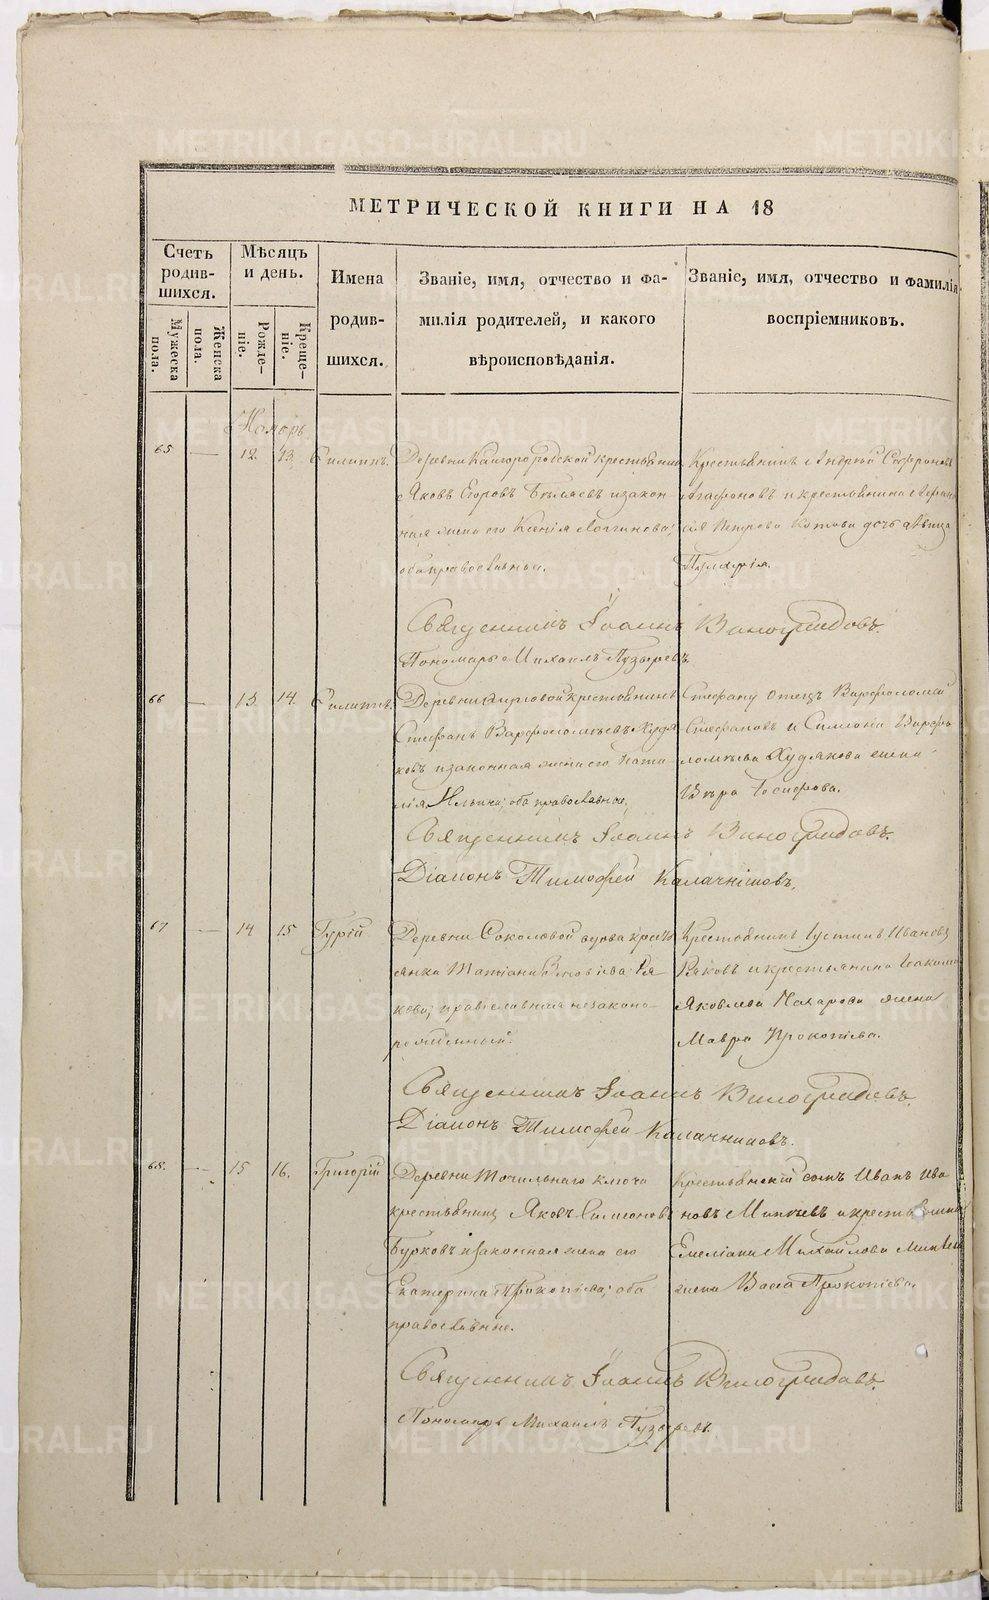 МЕТРИЧЕСКОЙ КНИГИ НА 18
Счетъ родив- шихся.
Мужеска пола.
Женска пола.
Мѣсяцъ и день.
Рожде- ніе.
Креще- ніе.
Имена родив- шихся.
Званіе, имя, отчество и фа- милія родителей, и какого вѣроисповѣданія.
Званіе, имя, отчество и фамилія воспріемниковъ.
Ноябрь
65 — 12. 13. Филиппъ.
Деревни Кайгородской крестьянинъ
Яковъ Егоровъ Бѣляевъ и закон
ная жена его Ксенія Логгинова;
оба православные.
Крестьянинъ Андрей Софроновъ
Агафоновъ и крестьянина
Петрова Котова дочь дѣвица
Пулхерія.
Священникъ Іоаннъ Виноградовъ.
Пономарь Михаилъ Пузыревъ.
66 — 13. 14. Филиппъ.
Деревни крестьянинъ
Стефанъ Варфоломеевъ Худя
ковъ и законная жена его Ната-
лія Ильина; оба православные.
Стефану отецъ Варфоломей
Стефановъ и Симеона Варфо
ломеева Худякова жена
Вѣра Іосифова.
Священникъ Іоаннъ Виноградовъ.
Діаконъ Тимофей Калачниковъ.
67 — 14 15 Гурій
Деревни Соколовой вдова крест
янка Татіана
православная незаконо-
рожденный.
Крестьянинъ Іустинъ Ивановъ
и крестьянина Іакова
Яковлева Макарова жена
Мавра Прокопіева.
Священникъ Іоаннъ Виноградовъ.
Діаконъ Тимофей Калачниковъ.
68. — 15 16. Григорій
Деревни Точильнаго ключа
крестьянинъ Яковъ Симеоновъ
Бурковъ и законная жена его
Екатерина Прокопіева; оба
православные.
Крестьянскій сынъ Иванъ Ива
новъ и крестьянина
Емеліана Михайлова
жена Васса Прокопіева.
Священникъ Іоаннъ Виноградовъ.
Пономарь Михаилъ Пузыревъ.
METRIKI.GASO-URAL.RU